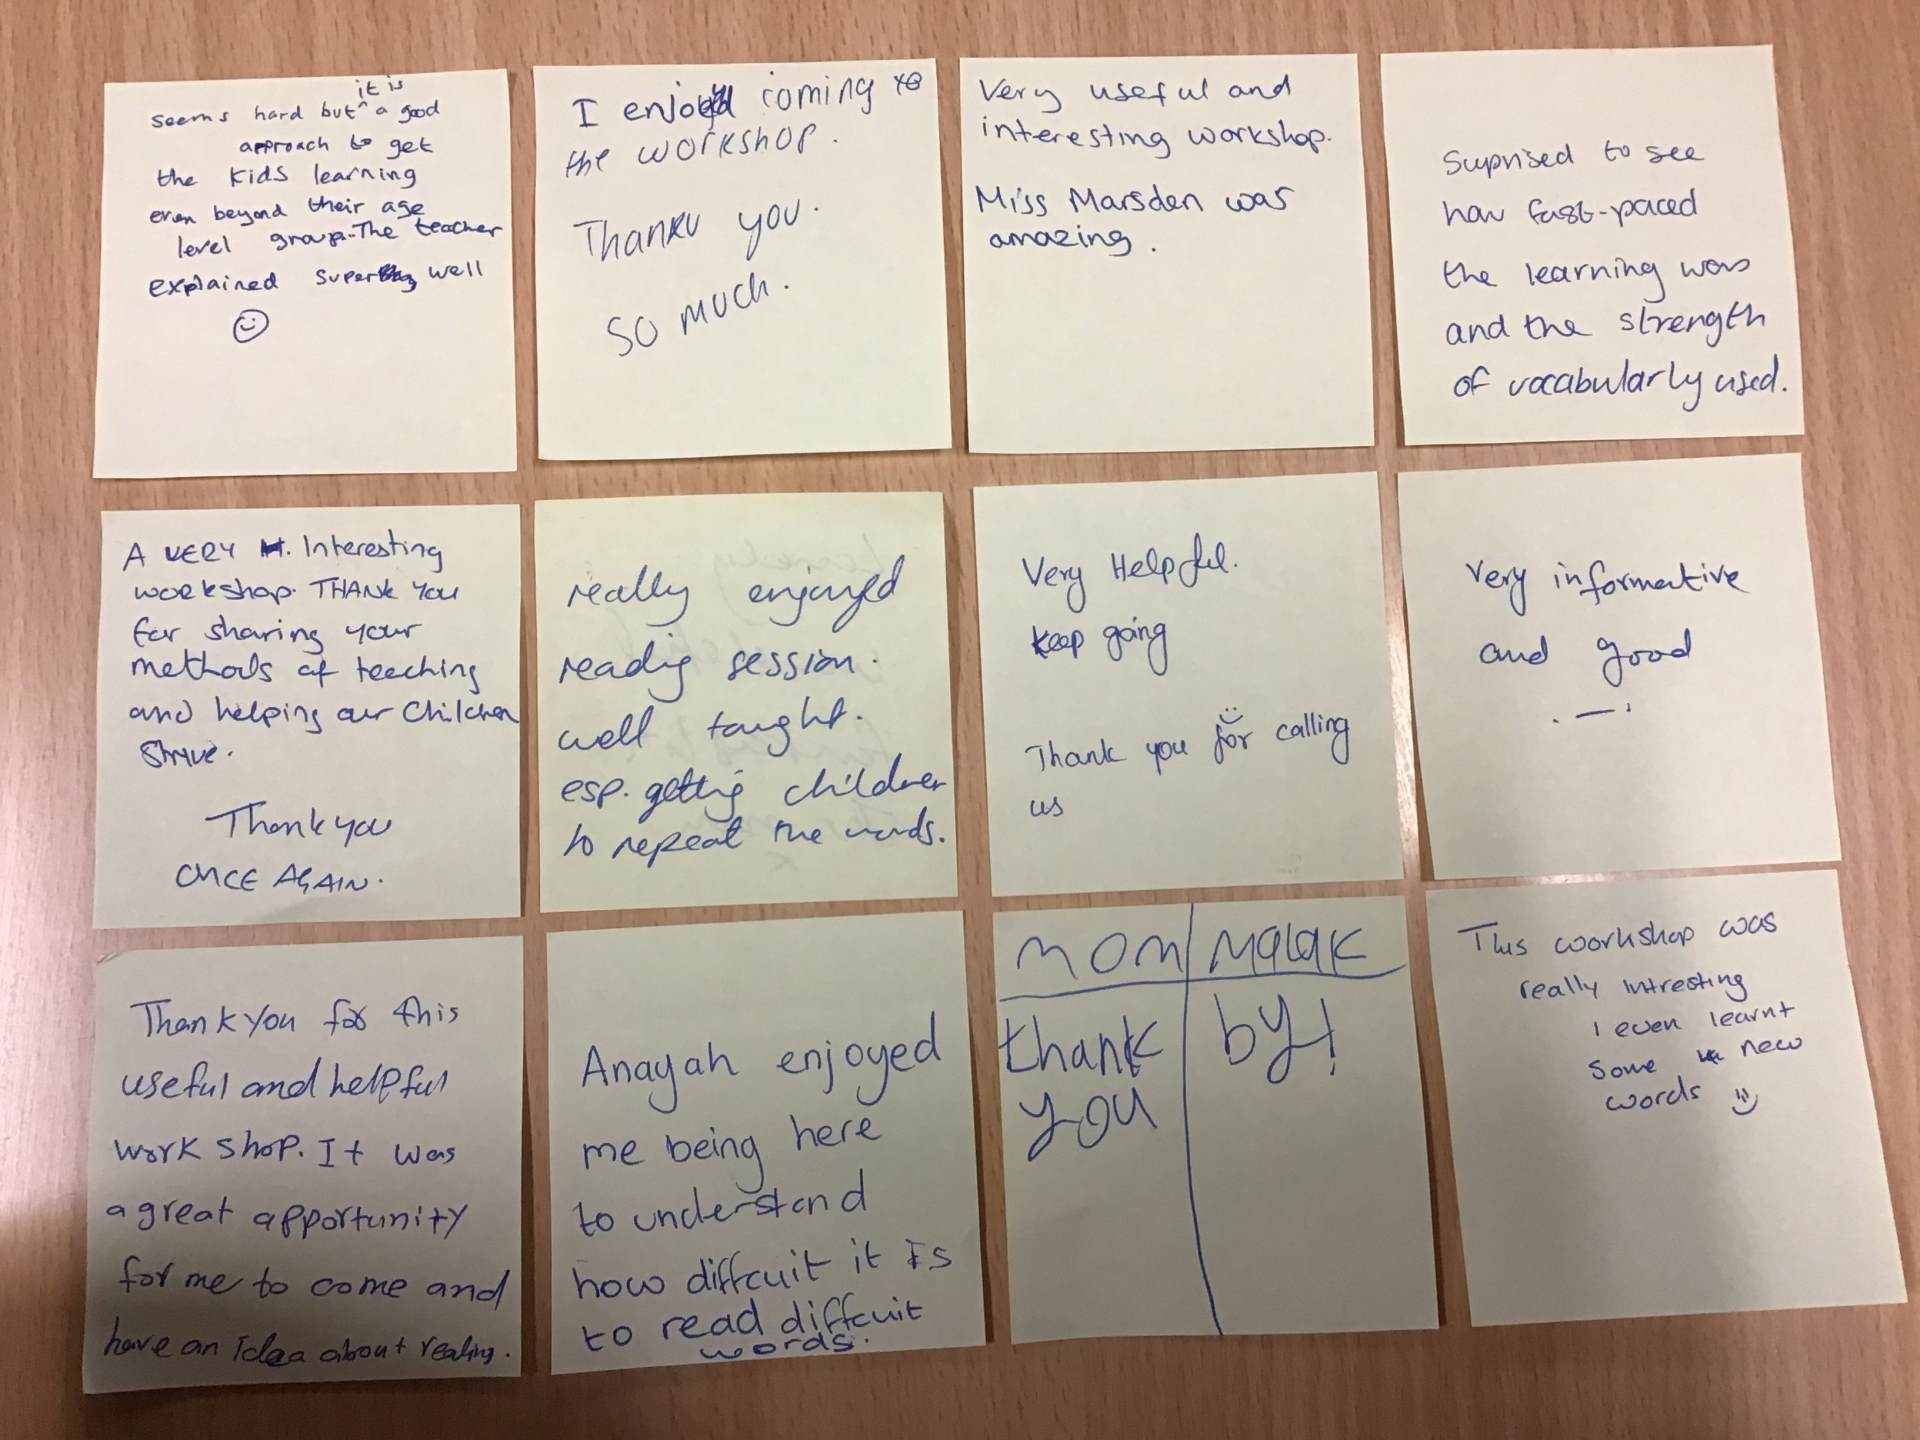 it is
seems hard but ^ a good
approach to get
the kids learning
even beyond their age
level group. The teacher
explained super well
I enjoyed coming to
the workshop.
Thank you.
so much.
Very useful and
interesting workshop.
Miss Marsden was
amazing.
Suprised to see
how fast-paced
the learning was
and the strength
of vocabularly used.
A VERY Interesting
workshop. THANK YOU
for sharing your
methods of teaching
and helping our Children
Strive.
Thank you
ONCE AGAIN.
really enjoyed
reading session.
well taught.
esp. getting children
to repeat the words.
Very Helpful.
keep going
Thank you for calling
us
Very informative
and good
Thank you for this
useful and helpful
work shop. It was
a great opportunity
for me to come and
have an idea about reading.
Anayah enjoyed
me being here
to understand
how diffcuit it is
to read diffcuit
words.
MOM Malak
thank by!
you
This workshop was
really intresting
I even learnt
some new
words